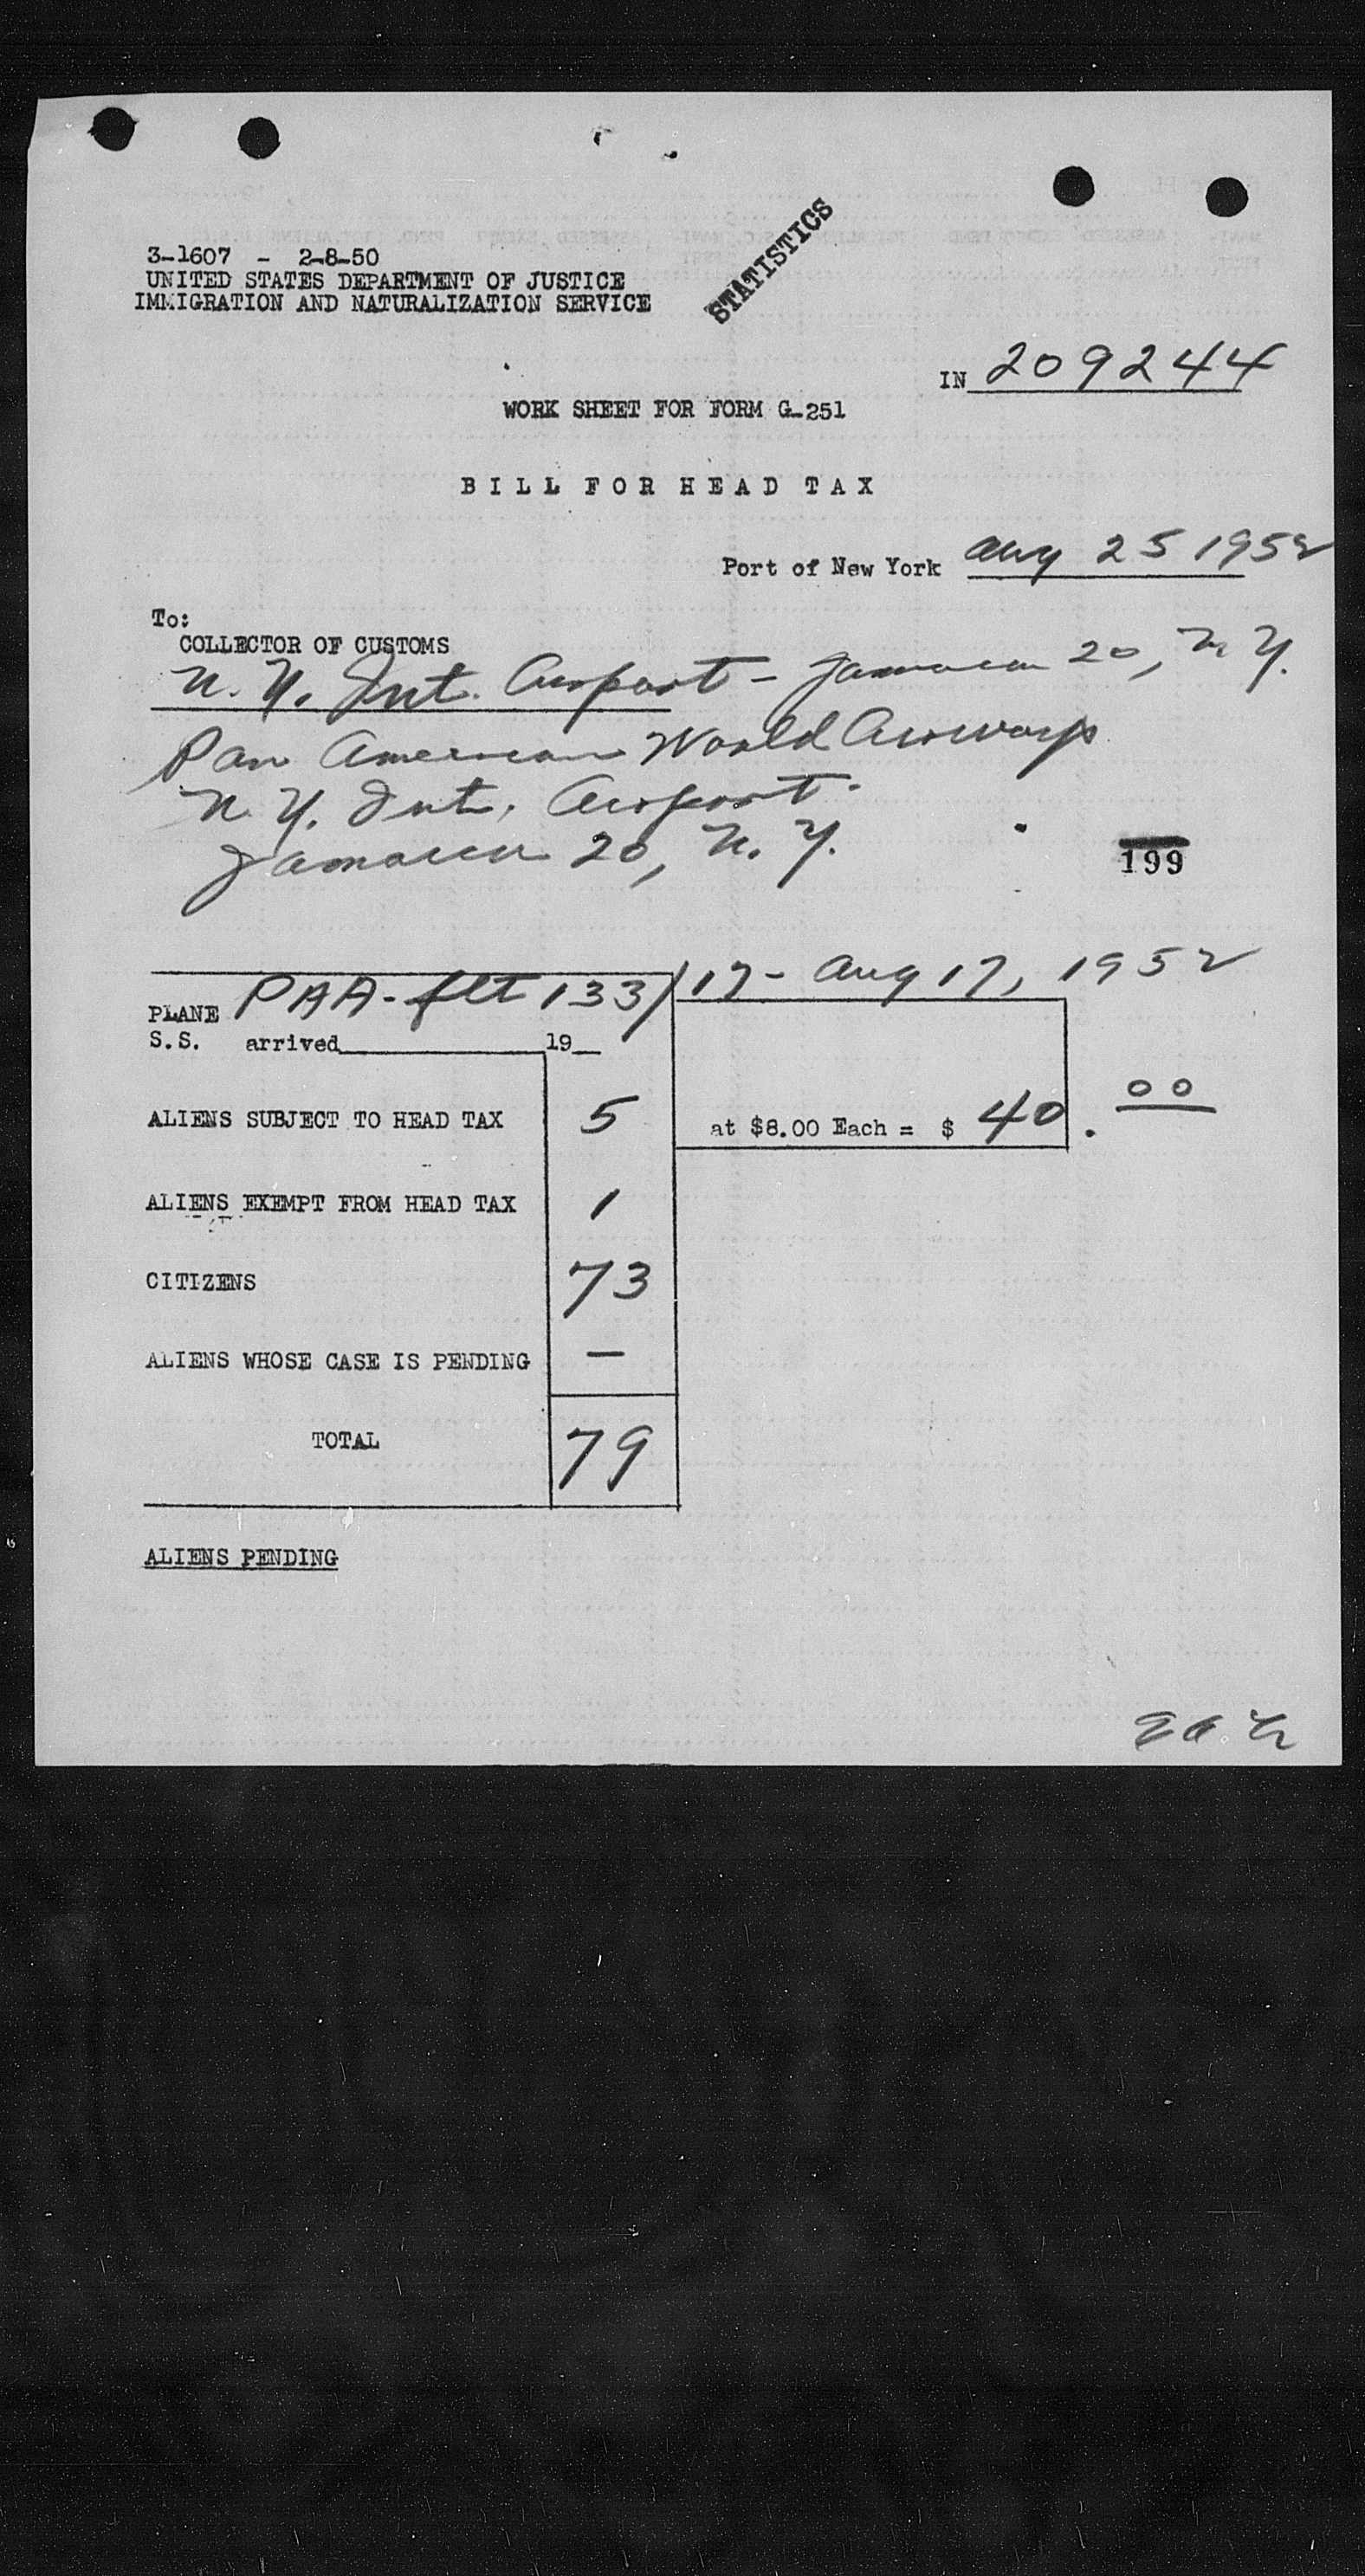 STATISTICS
3-1607 - 2-8-50
UNITED STATES DEPARTMENT OF JUSTICE
IMMIGRATION AND NATURALIZATION SERVICE
IN 209244
WORK SHEET FOR FORM G-251
BILL FOR HEAD TAX
Port of New York Aug 25 1952
To:
COLLECTOR OF CUSTOMS
N.Y. Int. Airport - Jamaica 20, N.Y.
Pan American World Airways
N.Y. Int. Airport.
Jamaica 20, N.Y.
199
PLANE PAA-flt 133/17- Aug 17, 1952
S.S. arrived 19
ALIENS SUBJECT TO HEAD TAX 5 at $8.00 Each = $ 40.00
ALIENS EXEMPT FROM HEAD TAX 1
CITIZENS 73
ALIENS WHOSE CASE IS PENDING —
TOTAL 79
ALIENS PENDING